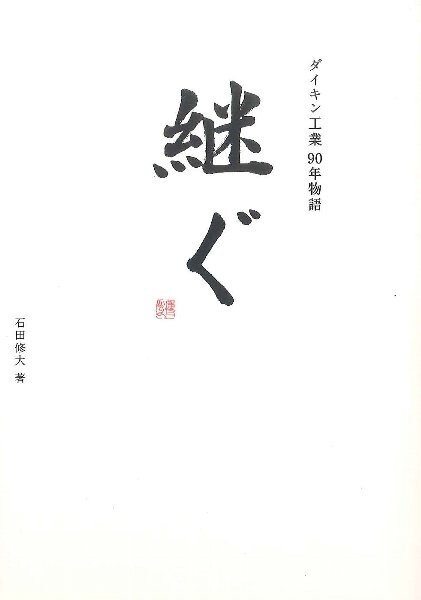 ダイキン工業 90年物語
継ぐ
石田修大 著